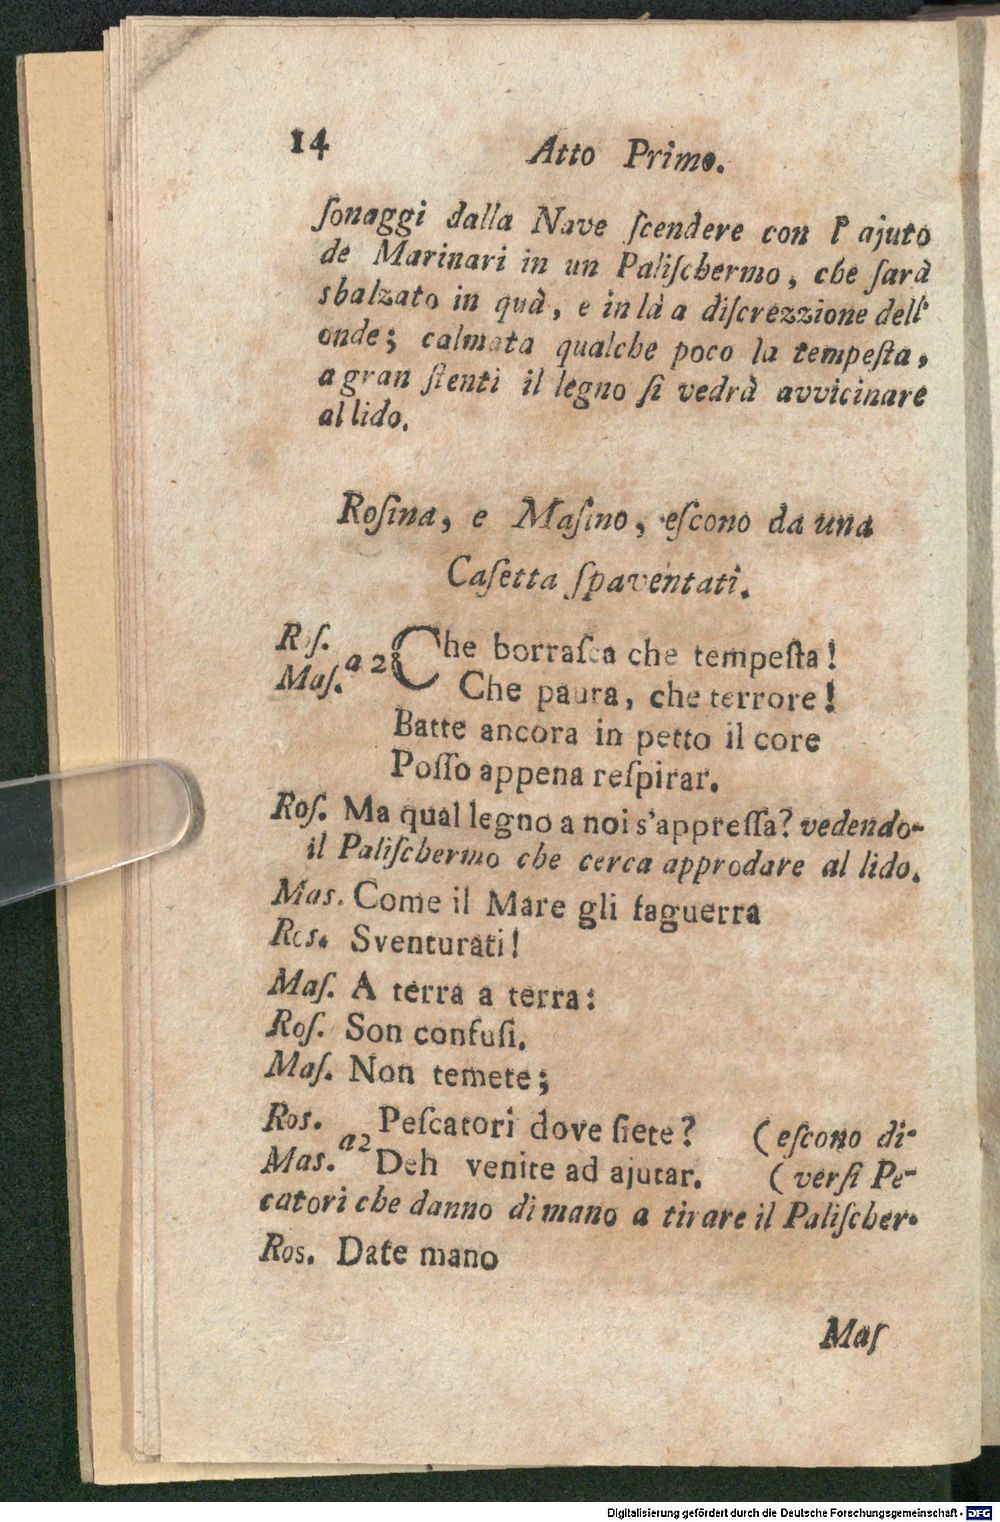 14 Atto Primo.
ſonaggi dalla Nave ſcendere con l' ajuto
de Marinari in un Paliſchermo, che ſarà
sbalzato in quà, e in là a diſcrezzione dell'
onde; calmata qualche poco la tempeſta,
a gran ſtenti il legno ſi vedrà avvicinare
al lido.
Roſina, e Maſino, eſcono da una
Caſetta ſpaventati.
Roſ. a 2 Che borraſca che tempeſta!
Maſ. Che paura, che terrore!
Batte ancora in petto il core
Poſſo appena reſpirar.
Roſ. Ma qual legno a noi s'appreſſa? vedendo-
il Paliſchermo che cerca approdare al lido.
Mas. Come il Mare gli faguerra
Ros. Sventurati!
Maſ. A terra a terra:
Roſ. Son confuſi.
Maſ. Non temete;
Ros. a 2 Peſcatori dove ſiete? (eſcono di-
Mas. Deh venite ad ajutar. (verſi Pe-
catori che danno di mano a tirare il Paliſcher-
Ros. Date mano
Maſ
Digitalisierung gefördert durch die Deutsche Forschungsgemeinschaft - DFG